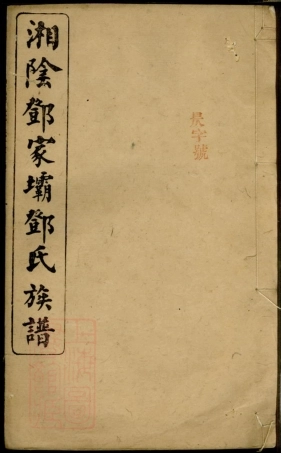 湘陰鄧家壩鄧氏族譜
字號